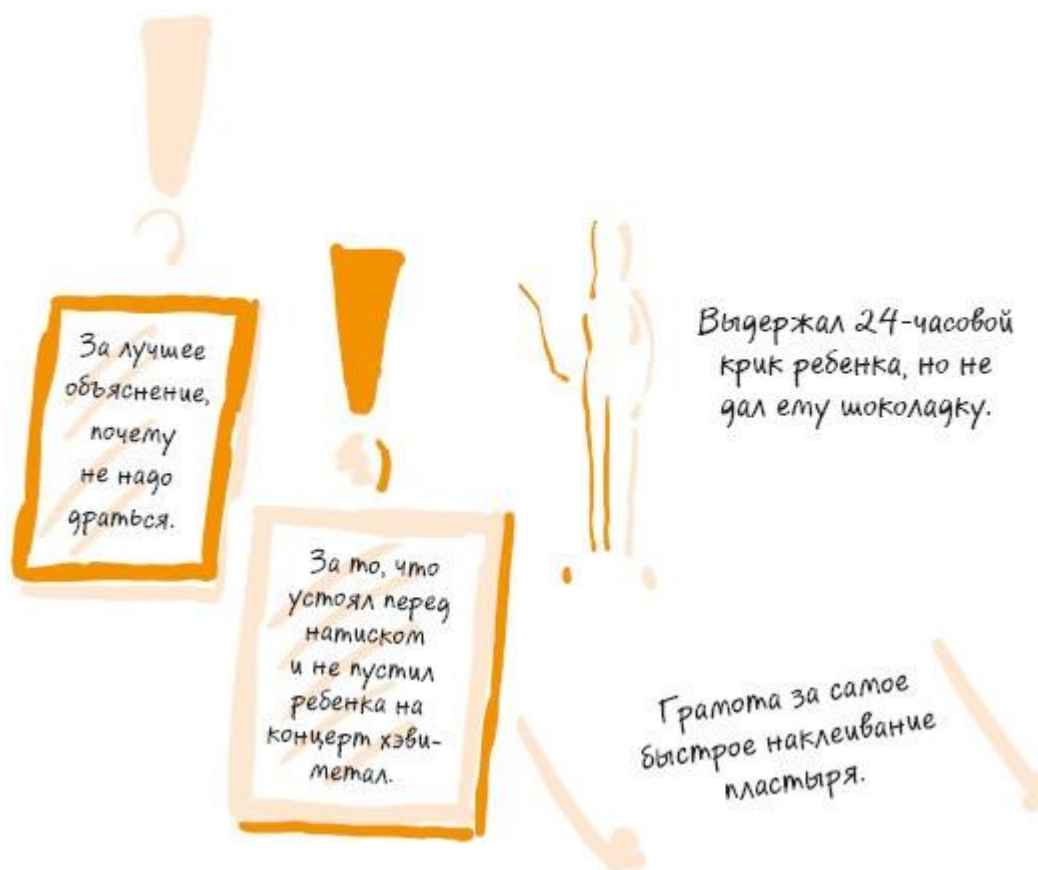 За лучшее
объяснение,
почему
не надо
драться.
За то, что
устоял перед
натиском
и не пустил
ребенка на
концерт хэви-
метал.
Выдержал 24-часовой
крик ребенка, но не
дал ему шоколадку.
Грамота за самое
быстрое наклеивание
пластыря.